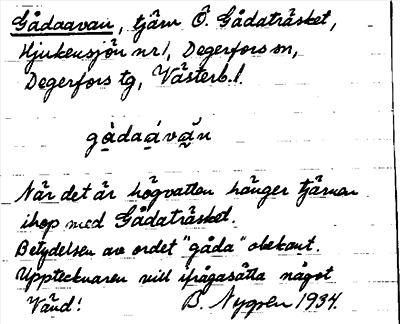 Gådaavan, tjärn Ö. Gådaträsket,
Hjukensjön nr 1, Degerfors sn,
Degerfors tg, Västerb. l.
gàdaávăn
När det är högvatten hänger tjärnen
ihop med Gådaträsket.
Betydelsen av ordet "gåda" obekant.
Upptecknaren vill ifrågasätta något
Vänd! B. Nygren 1934.